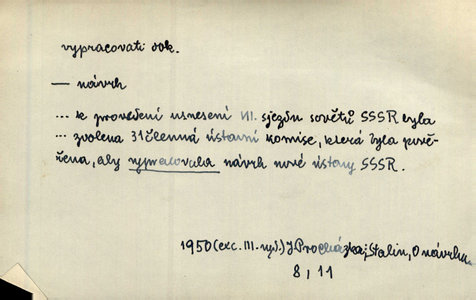 vypracovati dok.
— návrh
... k provedení usnesení VII. sjezdu sovětů SSSR byla
... zvolena 31členná ústavní komise, která byla pově-
řena, aby vypracovala návrh nové ústavy SSSR.
1950 (exc. III. vyd.) J Procházka; Stalin, O návrhu
8, 11